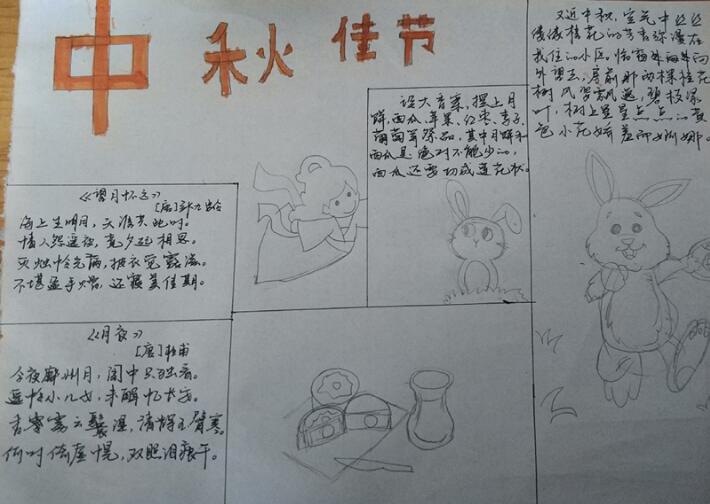 中秋佳节
又近中秋，空气中丝丝
缕缕桂花的芳香弥漫在
我住的小区。
外望去，房前那两棵桂花
树风姿飘逸，碧枝绿
叶，树上星星点点的黄
色小花娇羞而婀娜。
设大香案，摆上月
饼、西瓜、苹果、红枣、李子、
葡萄等祭品，其中月饼和
西瓜是绝对不能少的，
西瓜还要切成莲花状。
《望月怀远》
[唐]张九龄
海上生明月，天涯共此时。
情人怨遥夜，竟夕起相思。
灭烛怜光满，披衣觉露滋。
不堪盈手赠，还寝梦佳期。
《月夜》
[唐]杜甫
今夜鄜州月，闺中只独看。
遥怜小儿女，未解忆长安。
香雾云鬟湿，清辉玉臂寒。
何时倚虚幌，双照泪痕干。